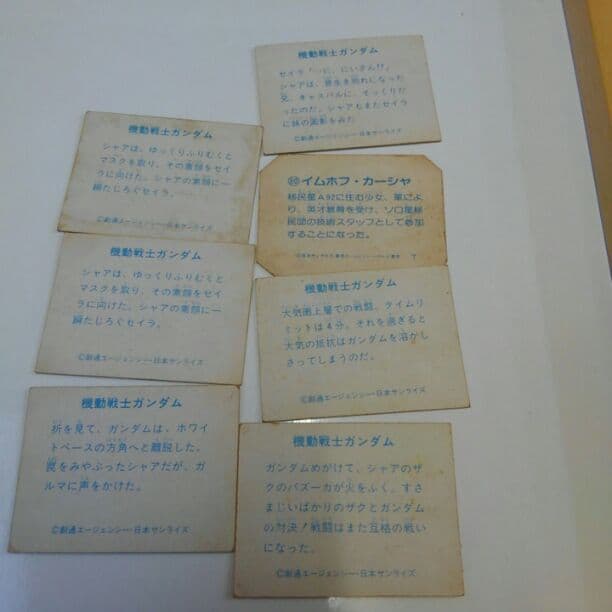 機動戦士ガンダム
シャアは、ゆっくりふりむくと
マスクを取り、その素顔をセイ
ラに向けた。シャアの素顔に一
瞬たじろぐセイラ。
©創通エージェンシー・日本サンライズ
機動戦士ガンダム
シャアは、ゆっくりふりむくと
マスクを取り、その素顔をセイ
ラに向けた。シャアの素顔に一
瞬たじろぐセイラ。
©創通エージェンシー・日本サンライズ
機動戦士ガンダム
折を見て、ガンダムは、ホワイ
トベースの方角へと離脱した。
罠をみやぶったシャアだが、ガ
ルマに声をかけた。
©創通エージェンシー・日本サンライズ
機動戦士ガンダム
セイラ「…に、にいさん!!」
シャアは、昔生き別れになった
兄、キャスバルに、そっくりだ
ったのだ。シャアもまたセイラ
に妹の面影をみた
©創通エージェンシー・日本サンライズ
イムホフ・カーシャ
移民星A92に住む少女。軍によ
り、英才教育を受け、ソロ星移
民団の技術スタッフとして参加
することになった。
機動戦士ガンダム
大気圏上層での戦闘、タイムリ
ミットは4分。それを過ぎると
大気の抵抗はガンダムを溶かし
さってしまうのだ。
©創通エージェンシー・日本サンライズ
機動戦士ガンダム
ガンダムめがけて、シャアのザ
クのバズーカが火をふく。すさ
まじいばかりのザクとガンダム
の対決!戦闘はまた互格の戦い
になった。
©創通エージェンシー・日本サンライズ